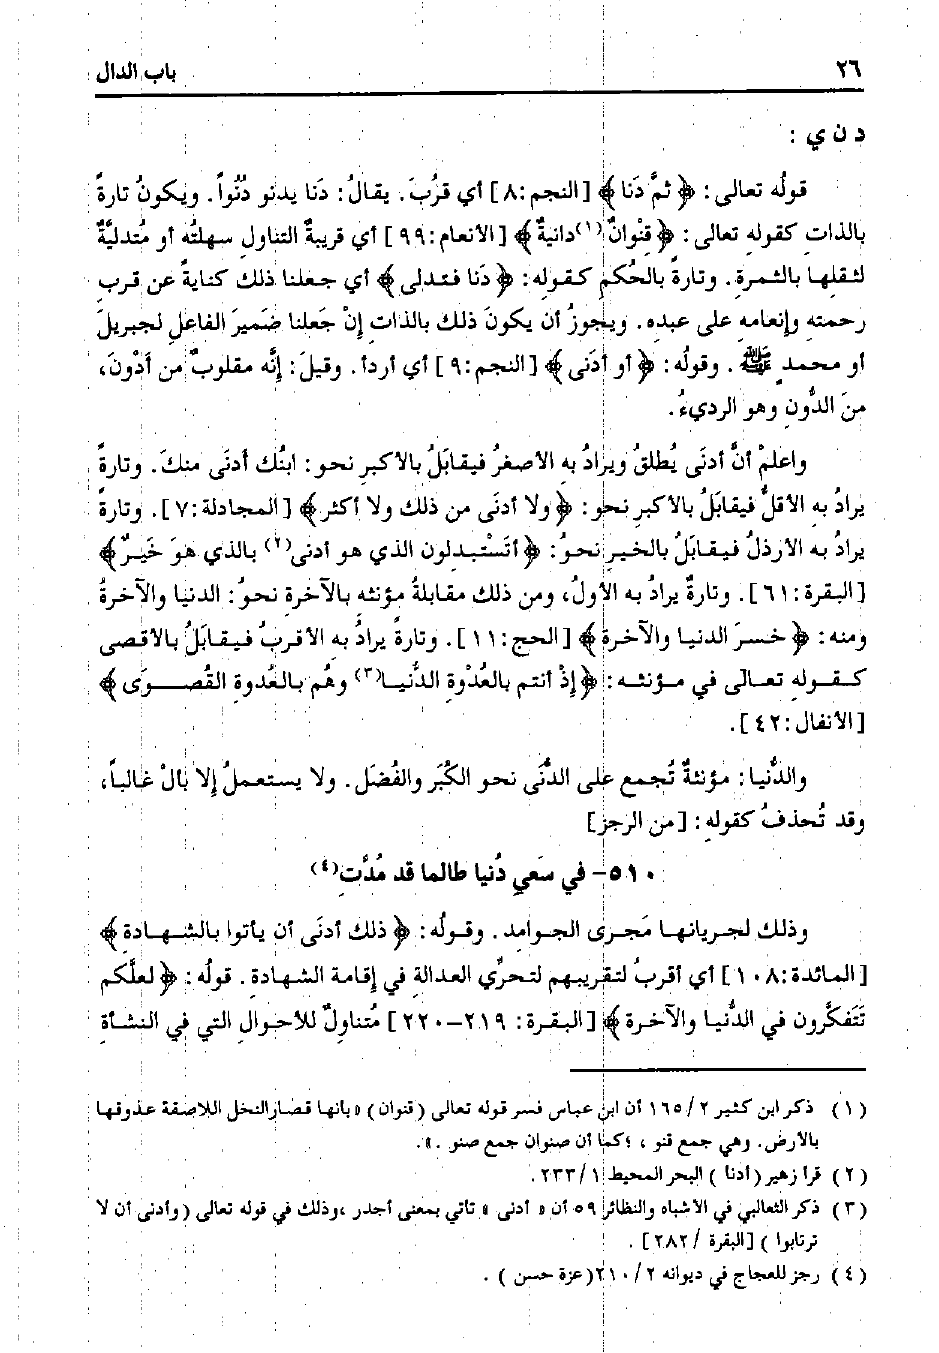 ٢٦ باب الدال
د ن ي :
قولُه تعالى: ﴿ ثمَّ دَنا ﴾ [النجم:٨] أي قرُبَ. يقالُ: دَنا يدنو دُنُواً. ويكونُ تارةً
بالذاتِ كقولِه تعالى: ﴿ قِنْوانٌ(١)دانيةٌ﴾ [الأنعام:٩٩] أي قريبةُ التناولِ سهلتُه أو مُتدليَّةٌ
لثقلِها بالثمرةِ. وتارةً بالحُكمِ كقولِه: ﴿ دَنا فتدلى ﴾ أي جعلنا ذلك كنايةً عن قربِ
رحمتِه وإنعامِه على عبدِه. ويجوزُ أن يكونَ ذلك بالذاتِ إنْ جَعلنا ضَميرَ الفاعلِ لجبريلَ
أو محمدٍ ﷺ . وقولُه: ﴿ أو أدنَى ﴾ [النجم:٩] أي أردأ. وقيلَ: إنَّه مقلوبٌ من أَدْونَ،
منَ الدُّونِ وهو الرديءُ.
واعلمْ أنَّ أدنَى يُطلقُ ويرادُ به الأصغرُ فيقابَلُ بالأكبرِ نحو: ابنُك أدنَى منكَ. وتارةً
يرادُ بهِ الأقلُّ فيقابَلُ بالأكبرِ نحو: ﴿ ولا أدنَى من ذلك ولا أكثر ﴾ [المجادلة:٧]. وتارةً
يرادُ به الأرذلُ فيقابَلُ بالخيرِ نحوُ: ﴿ أتَسْتبدلون الذي هو أدنى(٢) بالذي هوَ خَيرٌ ﴾
[البقرة:٦١]. وتارةٌ يرادُ به الأولُ، ومن ذلك مقابلةُ مؤنثِه بالآخرةِ نحوُ: الدنيا والآخرةُ
ومنه: ﴿ خسرَ الدنيا والآخرةَ ﴾ [الحج:١١]. وتارةً يرادُ به الأقربُ فيقابَلُ بالأقصى
كقولِه تعالى في مؤنثه: ﴿ إذْ أنتم بالعُدْوةِ الدُّنيا(٣) وهُم بالعُدوة القُصوَى ﴾
[الأنفال:٤٢].
والدُّنيا: مؤنثةٌ تُجمع على الدُّنَى نحو الكُبَر والفُضَل. ولا يستعملُ إلا بألْ غالباً،
وقد تُحذفُ كقولِه: [من الرجز]
٥١٠- في سَعي دُنيا طالما قد مُدَّتِ(٤)
وذلك لجريانها مَجرى الجوامد. وقولُه: ﴿ ذلك أدنَى أن يأتوا بالشهادةِ ﴾
[المائدة:١٠٨] أي أقربُ لتقريبِهم لتحرِّي العدالة في إقامة الشهادةِ. قولُه: ﴿ لعلَّكم
تَتَفكَّرون في الدُّنيا والآخرة ﴾ [البقرة: ٢١٩-٢٢٠] مُتناولٌ للأحوالِ التي في النشأةِ
(١) ذكر ابن كثير ٢/ ١٦٥ أن ابن عباس فسر قوله تعالى (قنوان) «بأنها قصار النخل اللاصقة عذوقها
بالأرض. وهي جمع قنو ، ؛كما أن صنوان جمع صنو . ».
(٢) قرأ زهير (أدنأ ) البحر المحيط ١/ ٢٣٣.
(٣) ذكر الثعالبي في الأشباه والنظائر ٥٩ أن « أدنى » تأتي بمعنى أجدر ،وذلك في قوله تعالى (وأدنى أن لا
ترتابوا ) [البقرة /٢٨٢] .
(٤) رجز للعجاج في ديوانه ٢/ ٢١٠(عزة حسن ) .